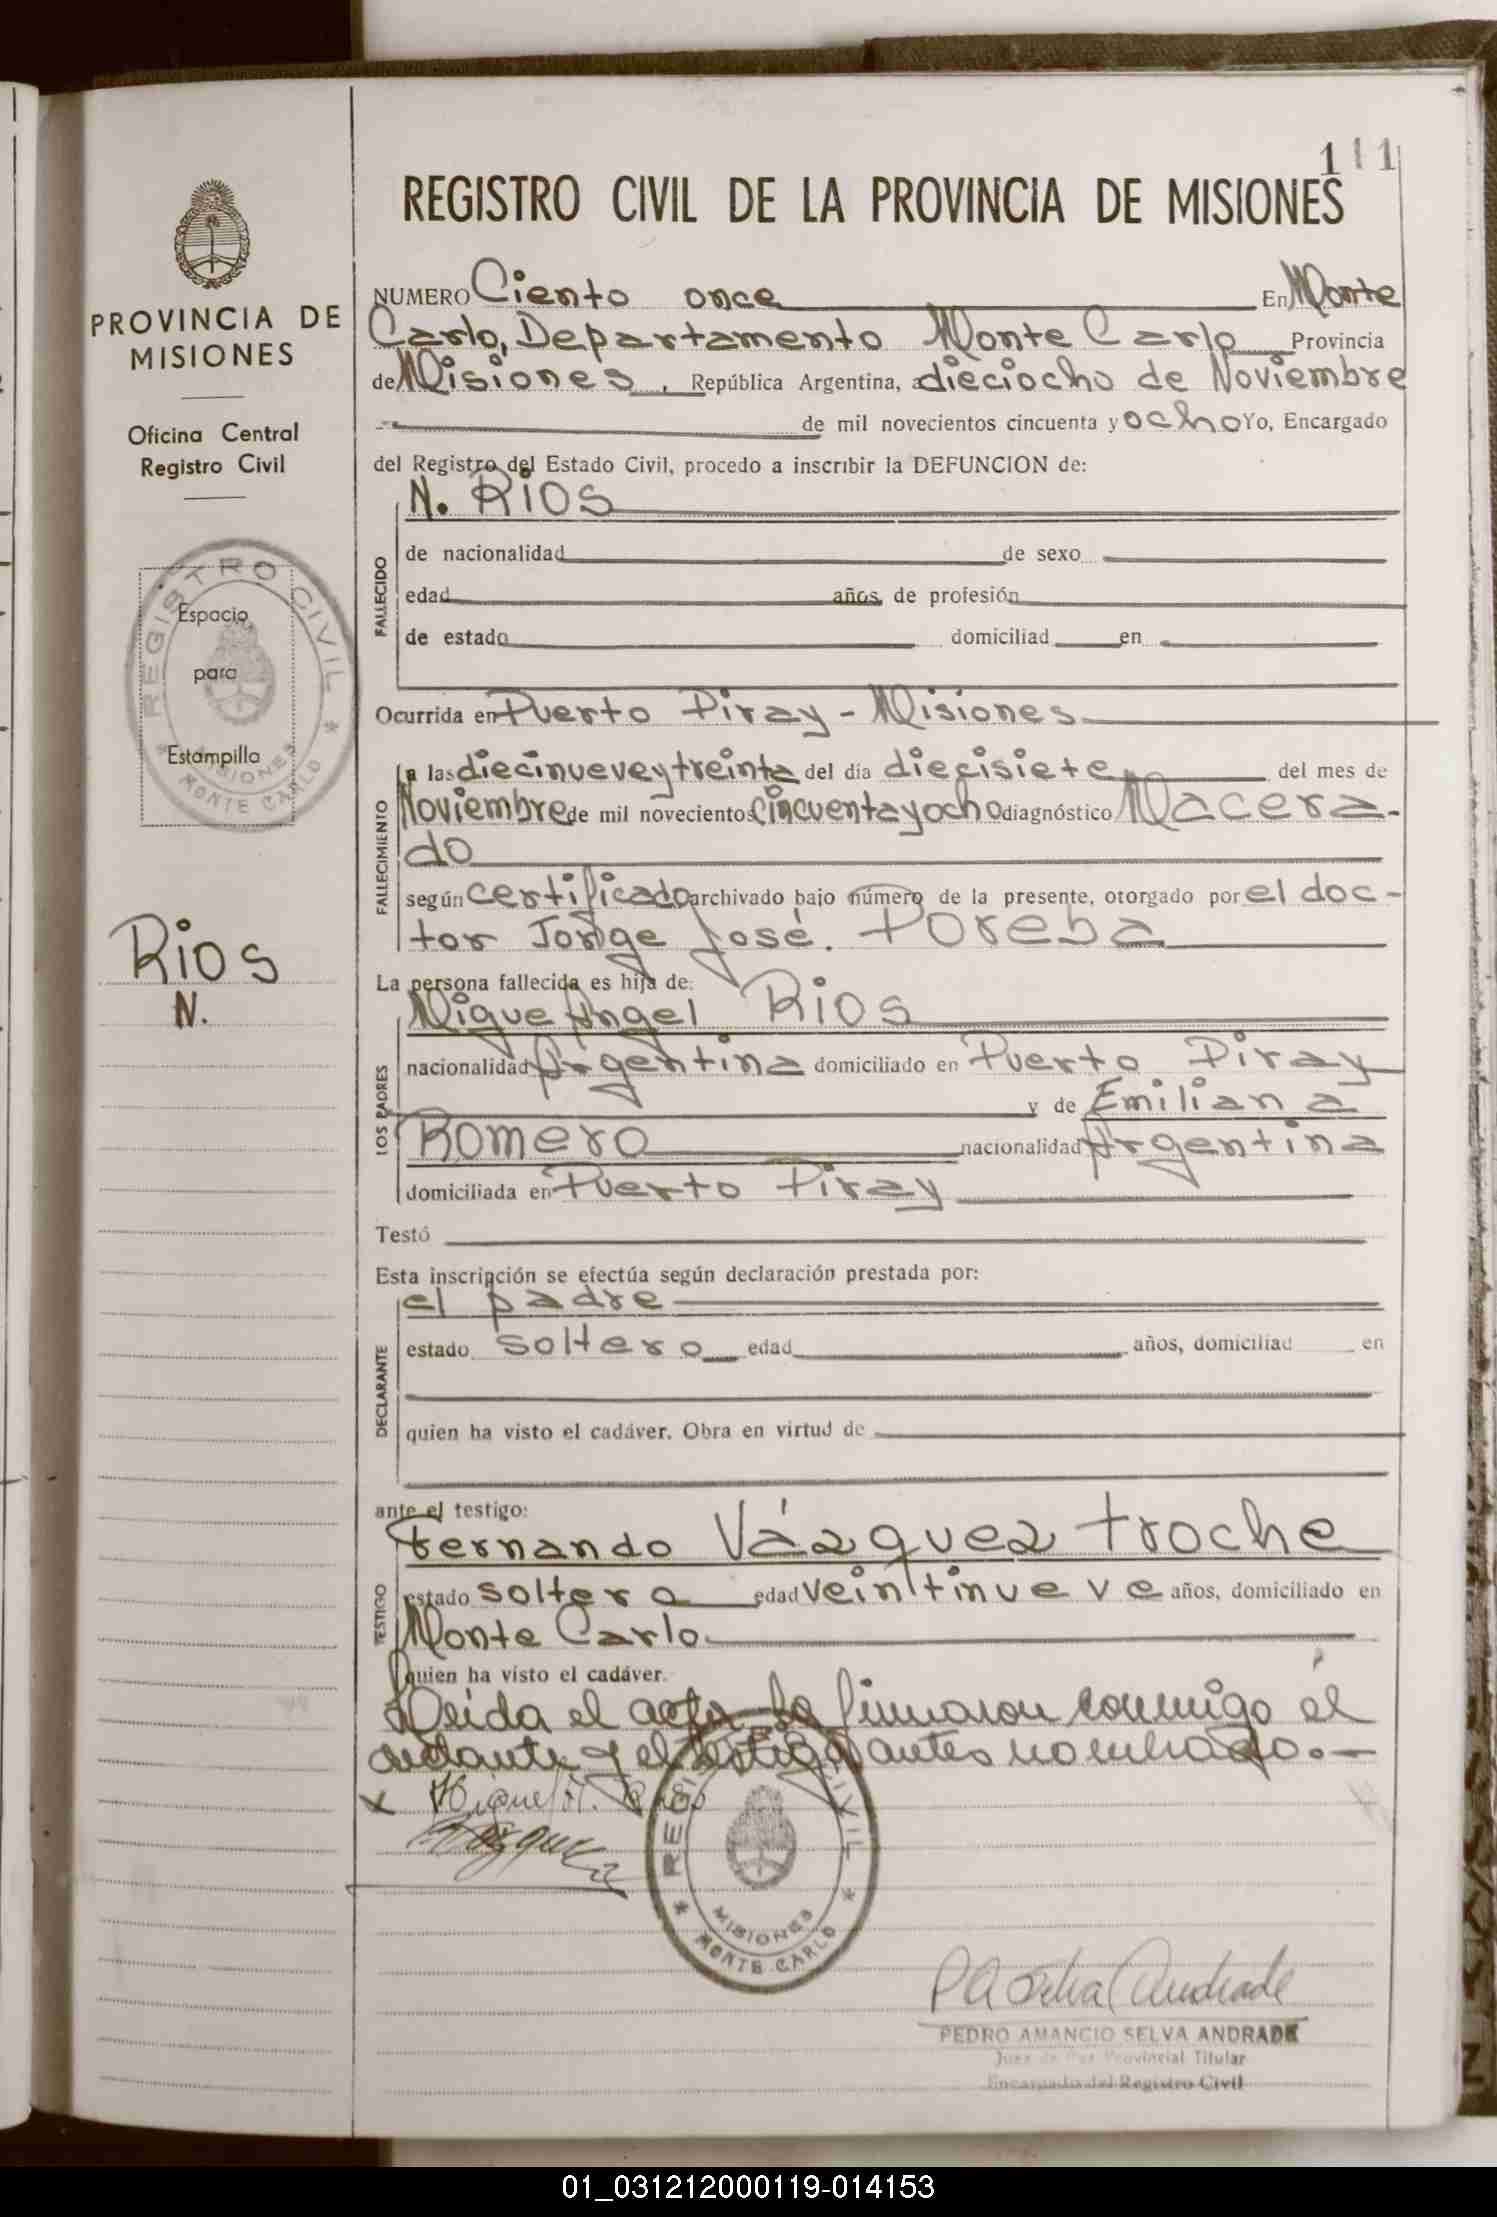 111
REGISTRO CIVIL DE LA PROVINCIA DE MISIONES
PROVINCIA DE
MISIONES
Oficina Central
Registro Civil
REGISTRO CIVIL
Espacio
para
Estampilla
MISIONES
MONTE CARLO
Rios
N.
NUMERO Ciento once En Monte
Carlo, Departamento Monte Carlo Provincia
de Misiones, República Argentina, a dieciocho de Noviembre
de mil novecientos cincuenta y ocho Yo, Encargado
del Registro del Estado Civil, procedo a inscribir la DEFUNCION de:
N. RIOS
FALLECIDO
de nacionalidad de sexo
edad años, de profesión
de estado domiciliad en
Ocurrida en Puerto Piray - Misiones
FALLECIMIENTO
a las diecinueve y treinta del día diecisiete del mes de
Noviembre de mil novecientos cincuenta y ocho diagnóstico Macera-
do
según certificado archivado bajo número de la presente, otorgado por el doc-
tor Jorge José. Poreba
La persona fallecida es hija de:
LOS PADRES
Migue Angel Rios
nacionalidad Argentina domiciliado en Puerto Piray
y de Emiliana
Romero nacionalidad Argentina
domiciliada en Puerto Piray
Testó
Esta inscripción se efectúa según declaración prestada por:
DECLARANTE
el padre
estado soltero edad años, domiciliad en
quien ha visto el cadáver. Obra en virtud de
ante el testigo:
TESTIGO
Fernando Vázquez Troche
estado soltero edad veintinueve años, domiciliado en
Monte Carlo
quien ha visto el cadáver.
Leida el acta la firmaron conmigo el
declarante y el testigo antes nombrado.-
x Miguel A. Rios
Vazquez
REGISTRO CIVIL
MISIONES
MONTE CARLO
P A Selva Andrade
PEDRO AMANCIO SELVA ANDRADE
Juez de Paz Provincial Titular
Encargado del Registro Civil
01_031212000119-014153